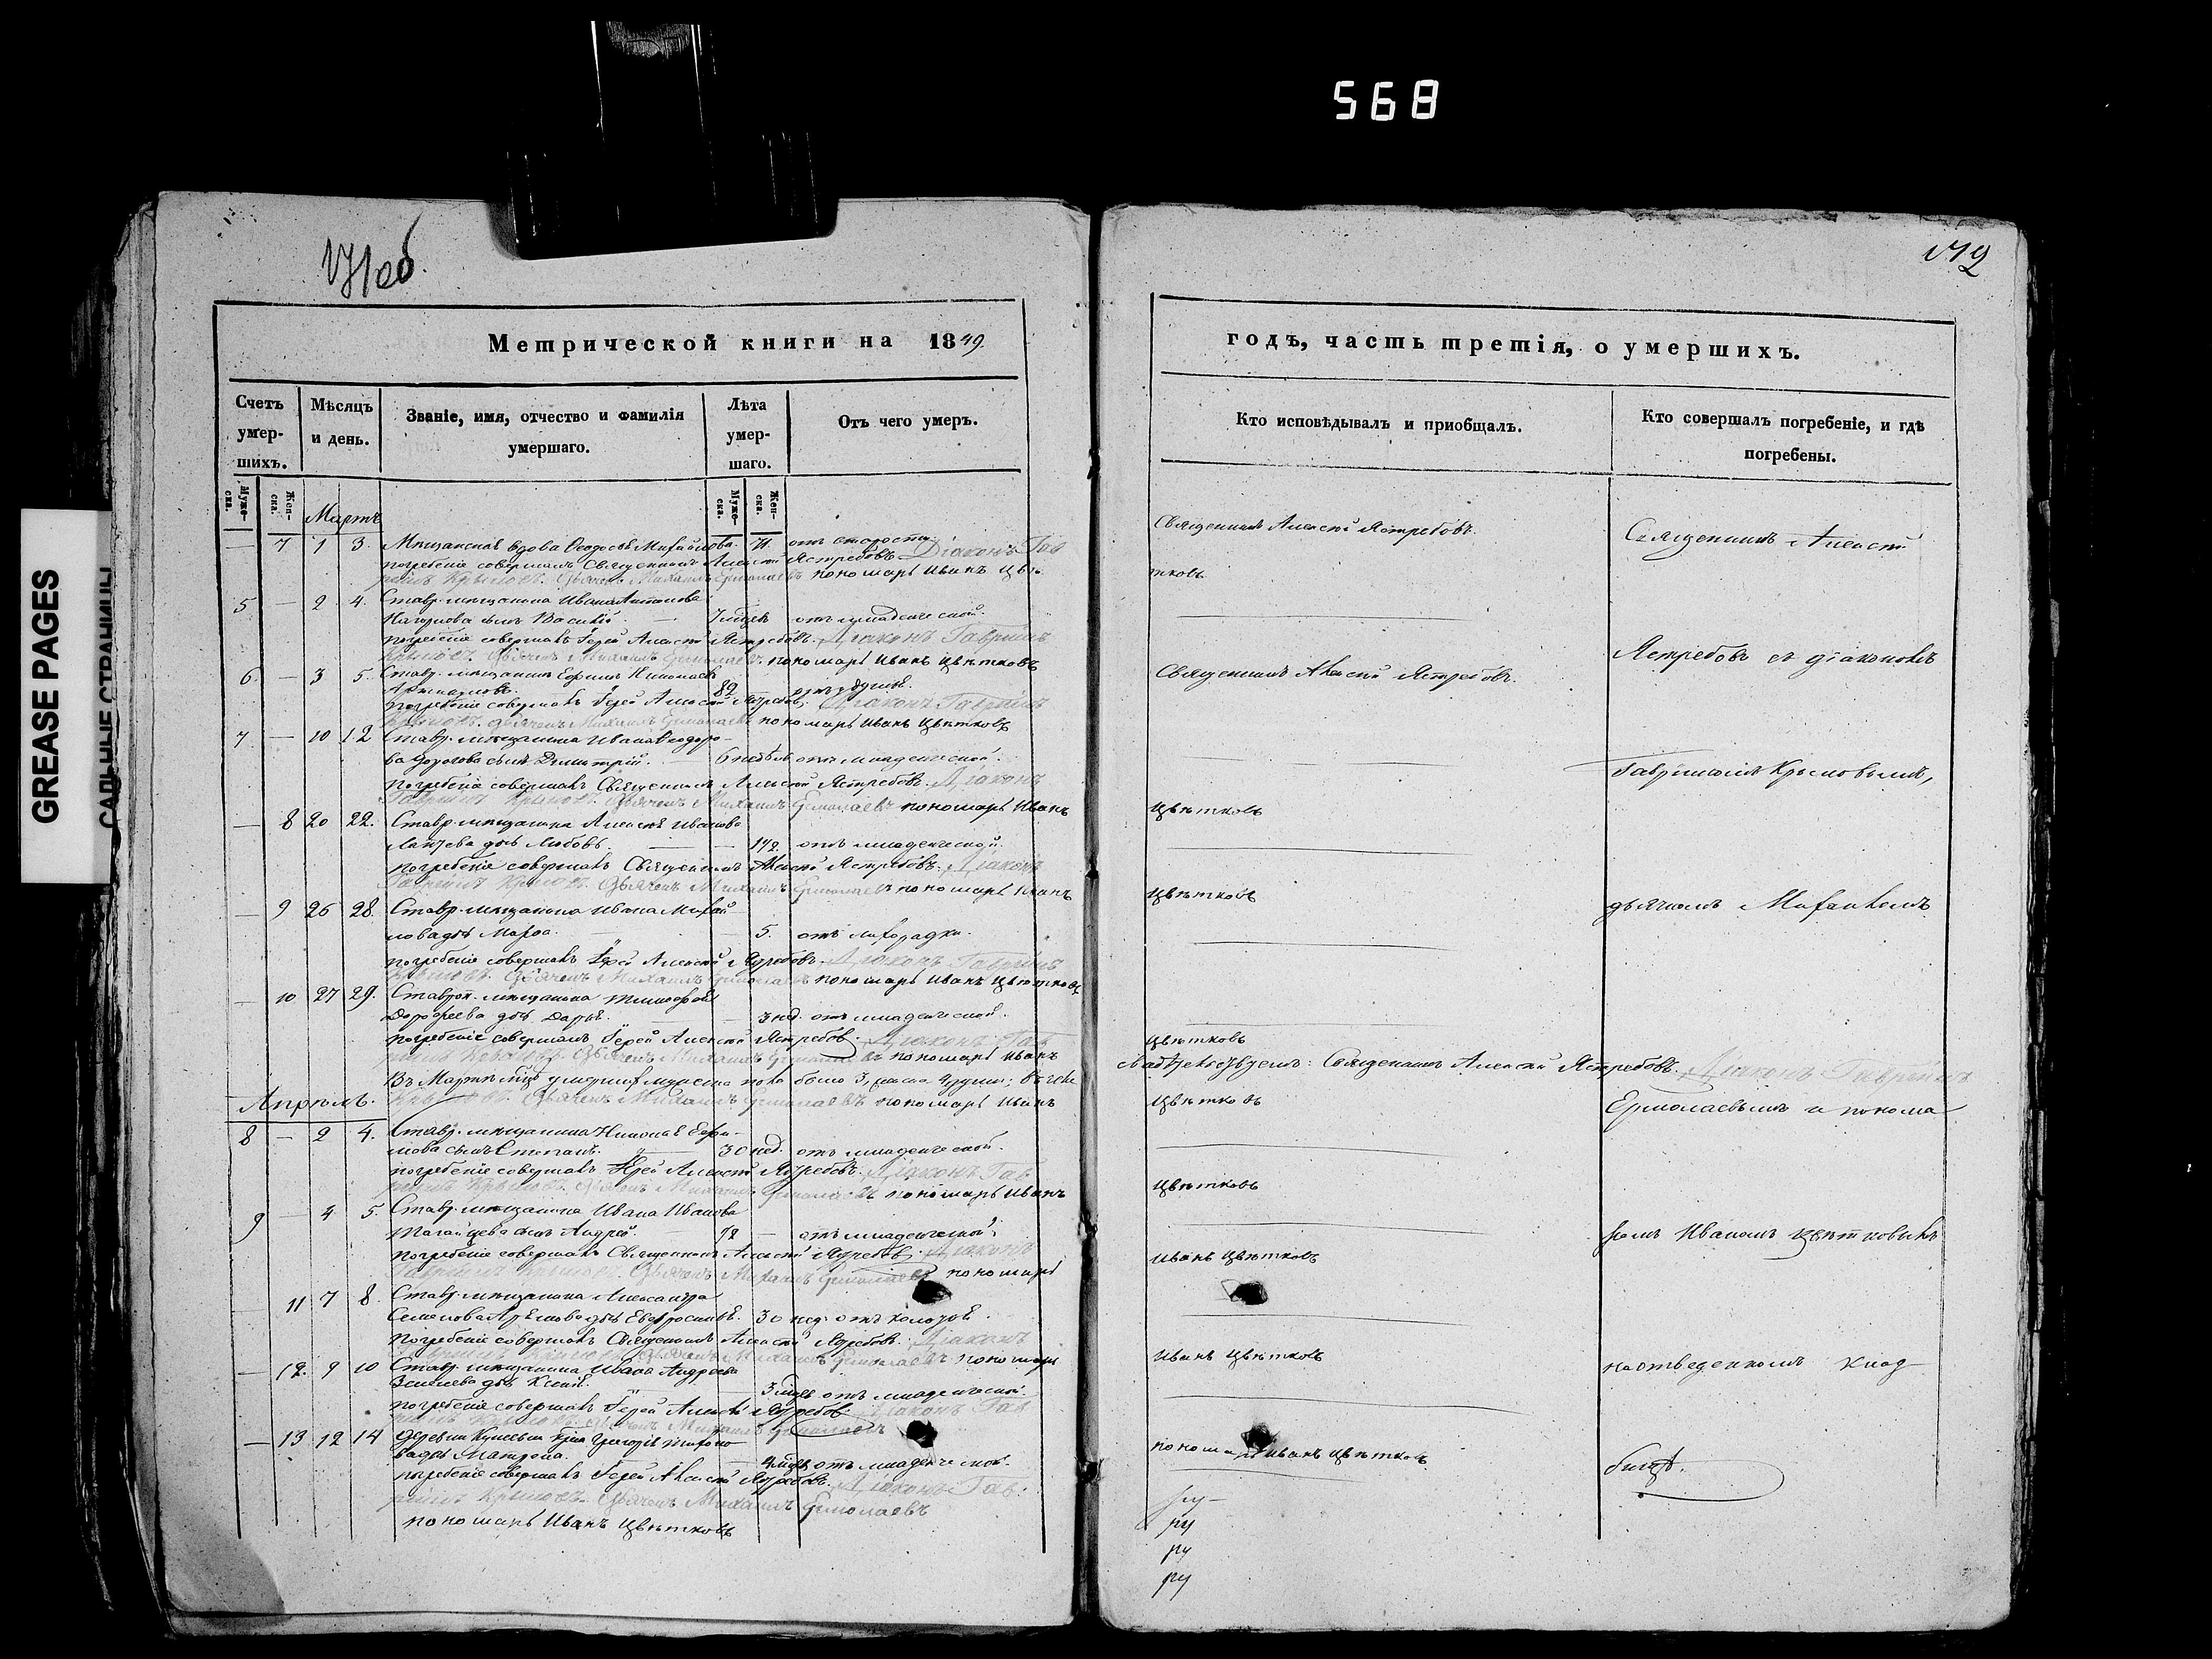 568
GREASE PAGES
САЛЬНЫЕ СТРАНИЦЫ
171 об.
Метрической книги на 1849.
Счетъ умер-шихъ.
Мѣсяцъ и день.
Званіе, имя, отчество и фамилія умершаго.
Лѣта умер-шаго.
Отъ чего умеръ.
Муже-ска. Жен-ска.
Муже-ска. Жен-ска.
Мартъ
— 7 1 3. Мѣщанская вдова Ѳеодосья Михайлова. 71. отъ старости.
погребеніе совершалъ Священникъ Алексѣй Ястребовъ Діаконъ Гав
ріилъ Крыловъ. Дьячекъ Михаилъ Ермолаевъ пономарь Иванъ Цвѣ
5 — 2 4. Ставр. мѣщанина Ивана Антонова
сынъ Василій. — 7 мѣсяц. отъ младенческой.
погребеніе совершалъ Іерей Алексѣй Ястребовъ. Діаконъ Гавріилъ
Крыловъ. Дьячекъ Михаилъ Ермолаевъ пономарь Иванъ Цвѣтковъ
6. — 3 5. Ставр. мѣщанинъ Ефимъ Николаевъ
82
погребеніе совершалъ Іерей Алексѣй Ястребовъ. Діаконъ Гавріилъ
Крыловъ. Дьячекъ Михаилъ Ермолаевъ пономарь Иванъ Цвѣтковъ
7. — 10 12 Ставр. мѣщанина Ивана Ѳеодоро-
ва сынъ Димитрій. — 6 недѣль отъ младенческой.
погребеніе совершалъ Священникъ Алексѣй Ястребовъ. Діаконъ
Гавріилъ Крыловъ. Дьячекъ Михаилъ Ермолаевъ пономарь Иванъ
— 8 20 22. Ставр. мѣщанина Алексѣя Иванова
дочь Любовь. — 1 1/2. отъ младенческой.
погребеніе совершалъ Священникъ Алексѣй Ястребовъ. Діаконъ
Гавріилъ Крыловъ. Дьячекъ Михаилъ Ермолаевъ пономарь Иванъ
— 9 26 28. Ставр. мѣщанина Ивана Михай-
лова дочь Марѳа. — 5. отъ лихорадки.
погребеніе совершалъ Іерей Алексѣй Ястребовъ. Діаконъ Гавріилъ
Крыловъ. Дьячекъ Михаилъ Ермолаевъ пономарь Иванъ Цвѣтковъ
— 10 27 29. Ставроп. мѣщанина Тимоѳея
Дороѳеева дочь Дарья. — 3 нед. отъ младенческой.
погребеніе совершалъ Іерей Алексѣй Ястребовъ. Діаконъ Гав
ріилъ Крыловъ. Дьячекъ Михаилъ Ермолаевъ пономарь Иванъ
Въ Мартѣ умершихъ мужеска пола было 3, женска 4 души;
Крыловъ. Дьячекъ Михаилъ Ермолаевъ пономарь Иванъ
Апрѣль.
8 — 2 4. Ставр. мѣщанина Николая Ефи-
мова сынъ Степанъ. — 30 нед. отъ младенческой.
погребеніе совершалъ Іерей Алексѣй Ястребовъ. Діаконъ Гав
ріилъ Крыловъ. Дьячекъ Михаилъ Ермолаевъ пономарь Иванъ
9 — 4 5. Ставр. мѣщанина Ивана Иванова
сынъ Андрей. — 1/2 — отъ младенческой.
погребеніе совершалъ Священникъ Алексѣй Ястребовъ. Діаконъ
Гавріилъ Крыловъ. Дьячекъ Михаилъ Ермолаевъ пономарь
— 11 7 8. Ставр. мѣщанина Александра
Семенова дочь Евфросинья. 30 нед. отъ
погребеніе совершалъ Священникъ Алексѣй Ястребовъ. Діаконъ
Гавріилъ Крыловъ. Дьячекъ Михаилъ Ермолаевъ пономарь
— 12. 9 10 Ставр. мѣщанина Ивана Андреева
дочь 3 мѣсяц. отъ младенческой.
погребеніе совершалъ Іерей Алексѣй Ястребовъ. Діаконъ Гав
ріилъ Крыловъ. Дьячекъ Михаилъ Ермолаевъ
— 13 12 14 Деревни Григорія
дочь Матрона. отъ младенческой.
погребеніе совершалъ Іерей Алексѣй Ястребовъ. Діаконъ Гав-
ріилъ Крыловъ. Дьячекъ Михаилъ Ермолаевъ
пономарь Иванъ Цвѣтковъ
172
годъ, часть третія, о умершихъ.
Кто исповѣдывалъ и приобщалъ.
Кто совершалъ погребеніе, и гдѣ погребены.
Священникъ Алексѣй Ястребовъ.
Священникъ Алексѣй
тковъ
Ястребовъ съ діакономъ
Священникъ Алексѣй Ястребовъ.
Гавріиломъ Крыловымъ,
Цвѣтковъ
Цвѣтковъ
дьячкомъ Михаиломъ
Цвѣтковъ
Священникъ Алексѣй Ястребовъ. Діаконъ Гавріилъ
Цвѣтковъ
Ермолаевымъ и понома
Цвѣтковъ
ремъ Иваномъ Цвѣтковымъ
Иванъ Цвѣтковъ
Иванъ Цвѣтковъ
на отведенномъ клад-
пономарь Иванъ Цвѣтковъ
бищѣ.
ру
ру
ру
ру